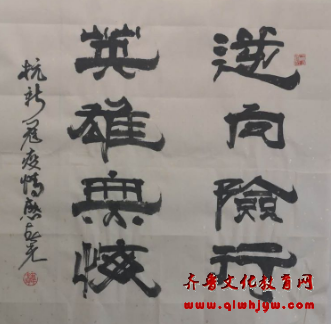 逆向險行
英雄無悔
抗新冠疫情
齐鲁文化教育网
www.qlwhjyw.com